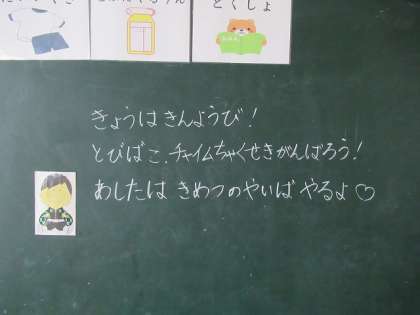 どくしょ
きょうは きんようび!
とびばこ、チャイムちゃくせきがんばろう!
あしたは きめつのやいば やるよ♡